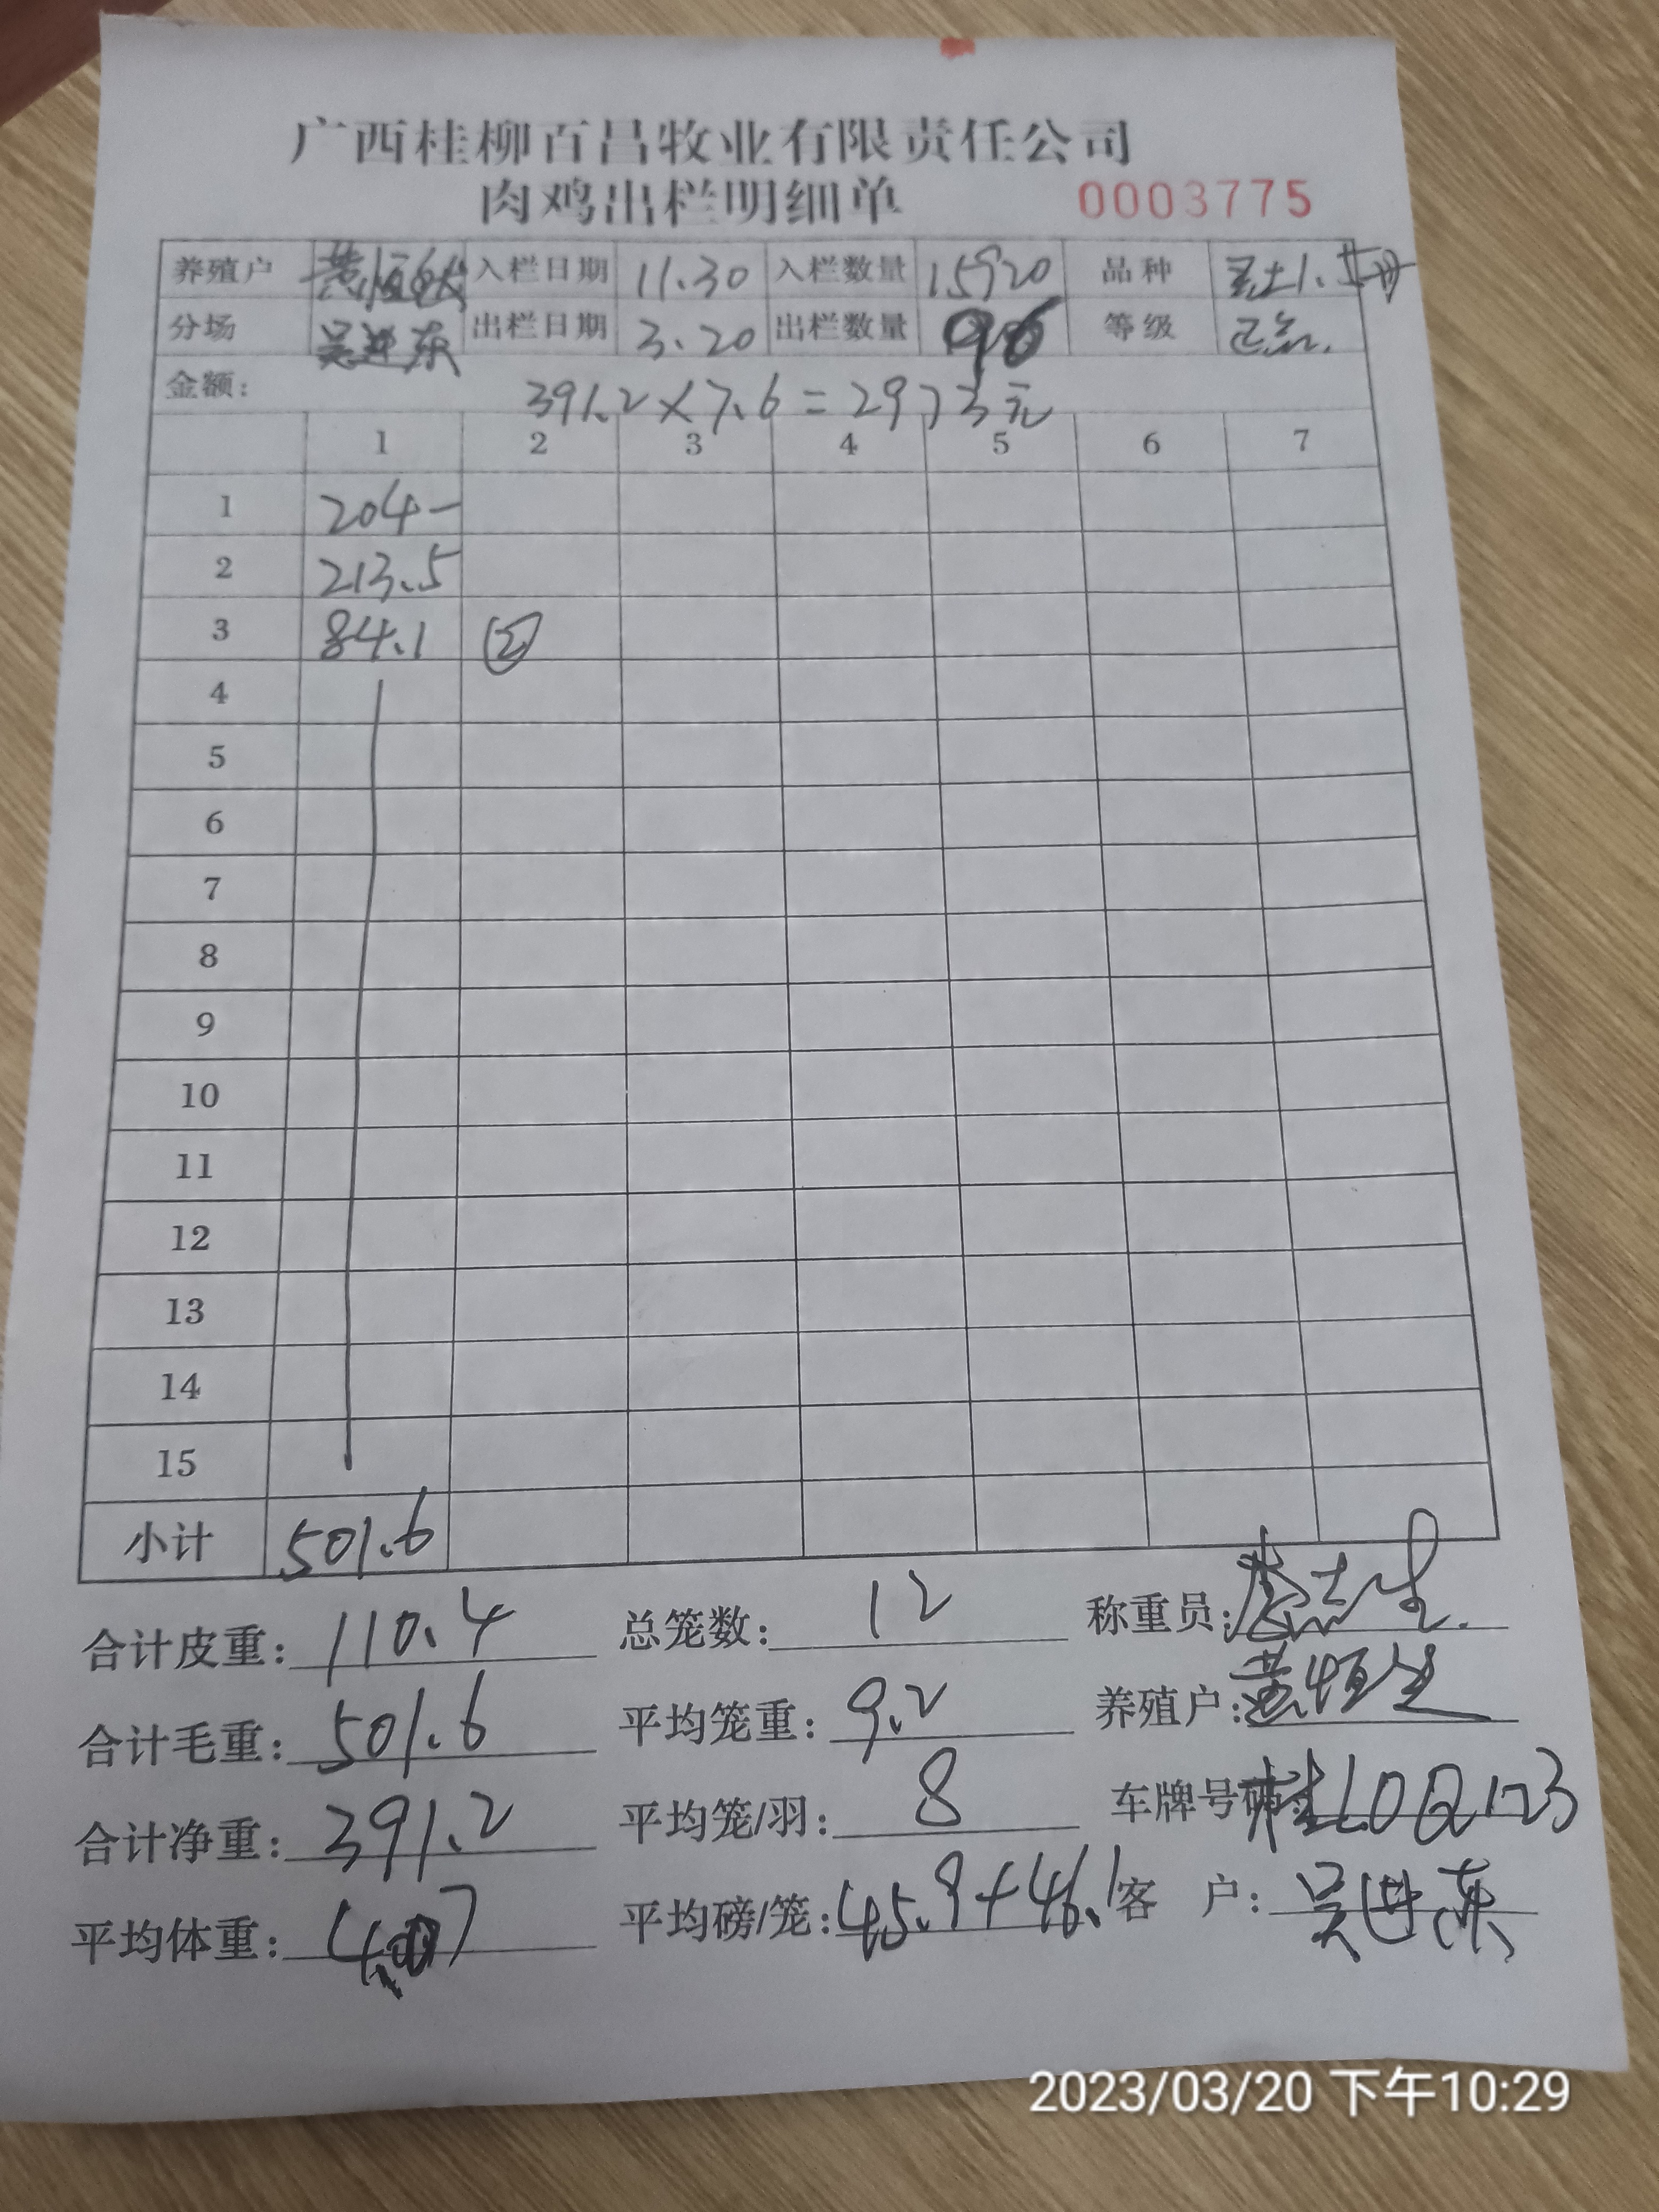 广西桂柳百昌牧业有限责任公司
肉鸡出栏明细单 0003775
养殖户 黄恒 入栏日期 11.30 入栏数量 15920 品种
分场 吴进东 出栏日期 3.20 出栏数量 96 等级 正品
金额: 391.2×7.6=2973元
1 2 3 4 5 6 7
1 204-
2 213.5
3 84.1 ②
4
5
6
7
8
9
10
11
12
13
14
15
小计 501.6
合计皮重: 110.4 总笼数: 12 称重员:
合计毛重: 501.6 平均笼重: 9.2 养殖户: 黄恒
合计净重: 391.2 平均笼/羽: 8 车牌号码: 桂L0Q123
平均体重: 4.07 平均磅/笼: 45.9+46.1 客 户: 吴进东
2023/03/20 下午10:29